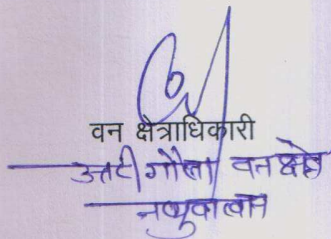 वन क्षेत्राधिकारी
उत्तरी गौला वन क्षेत्र